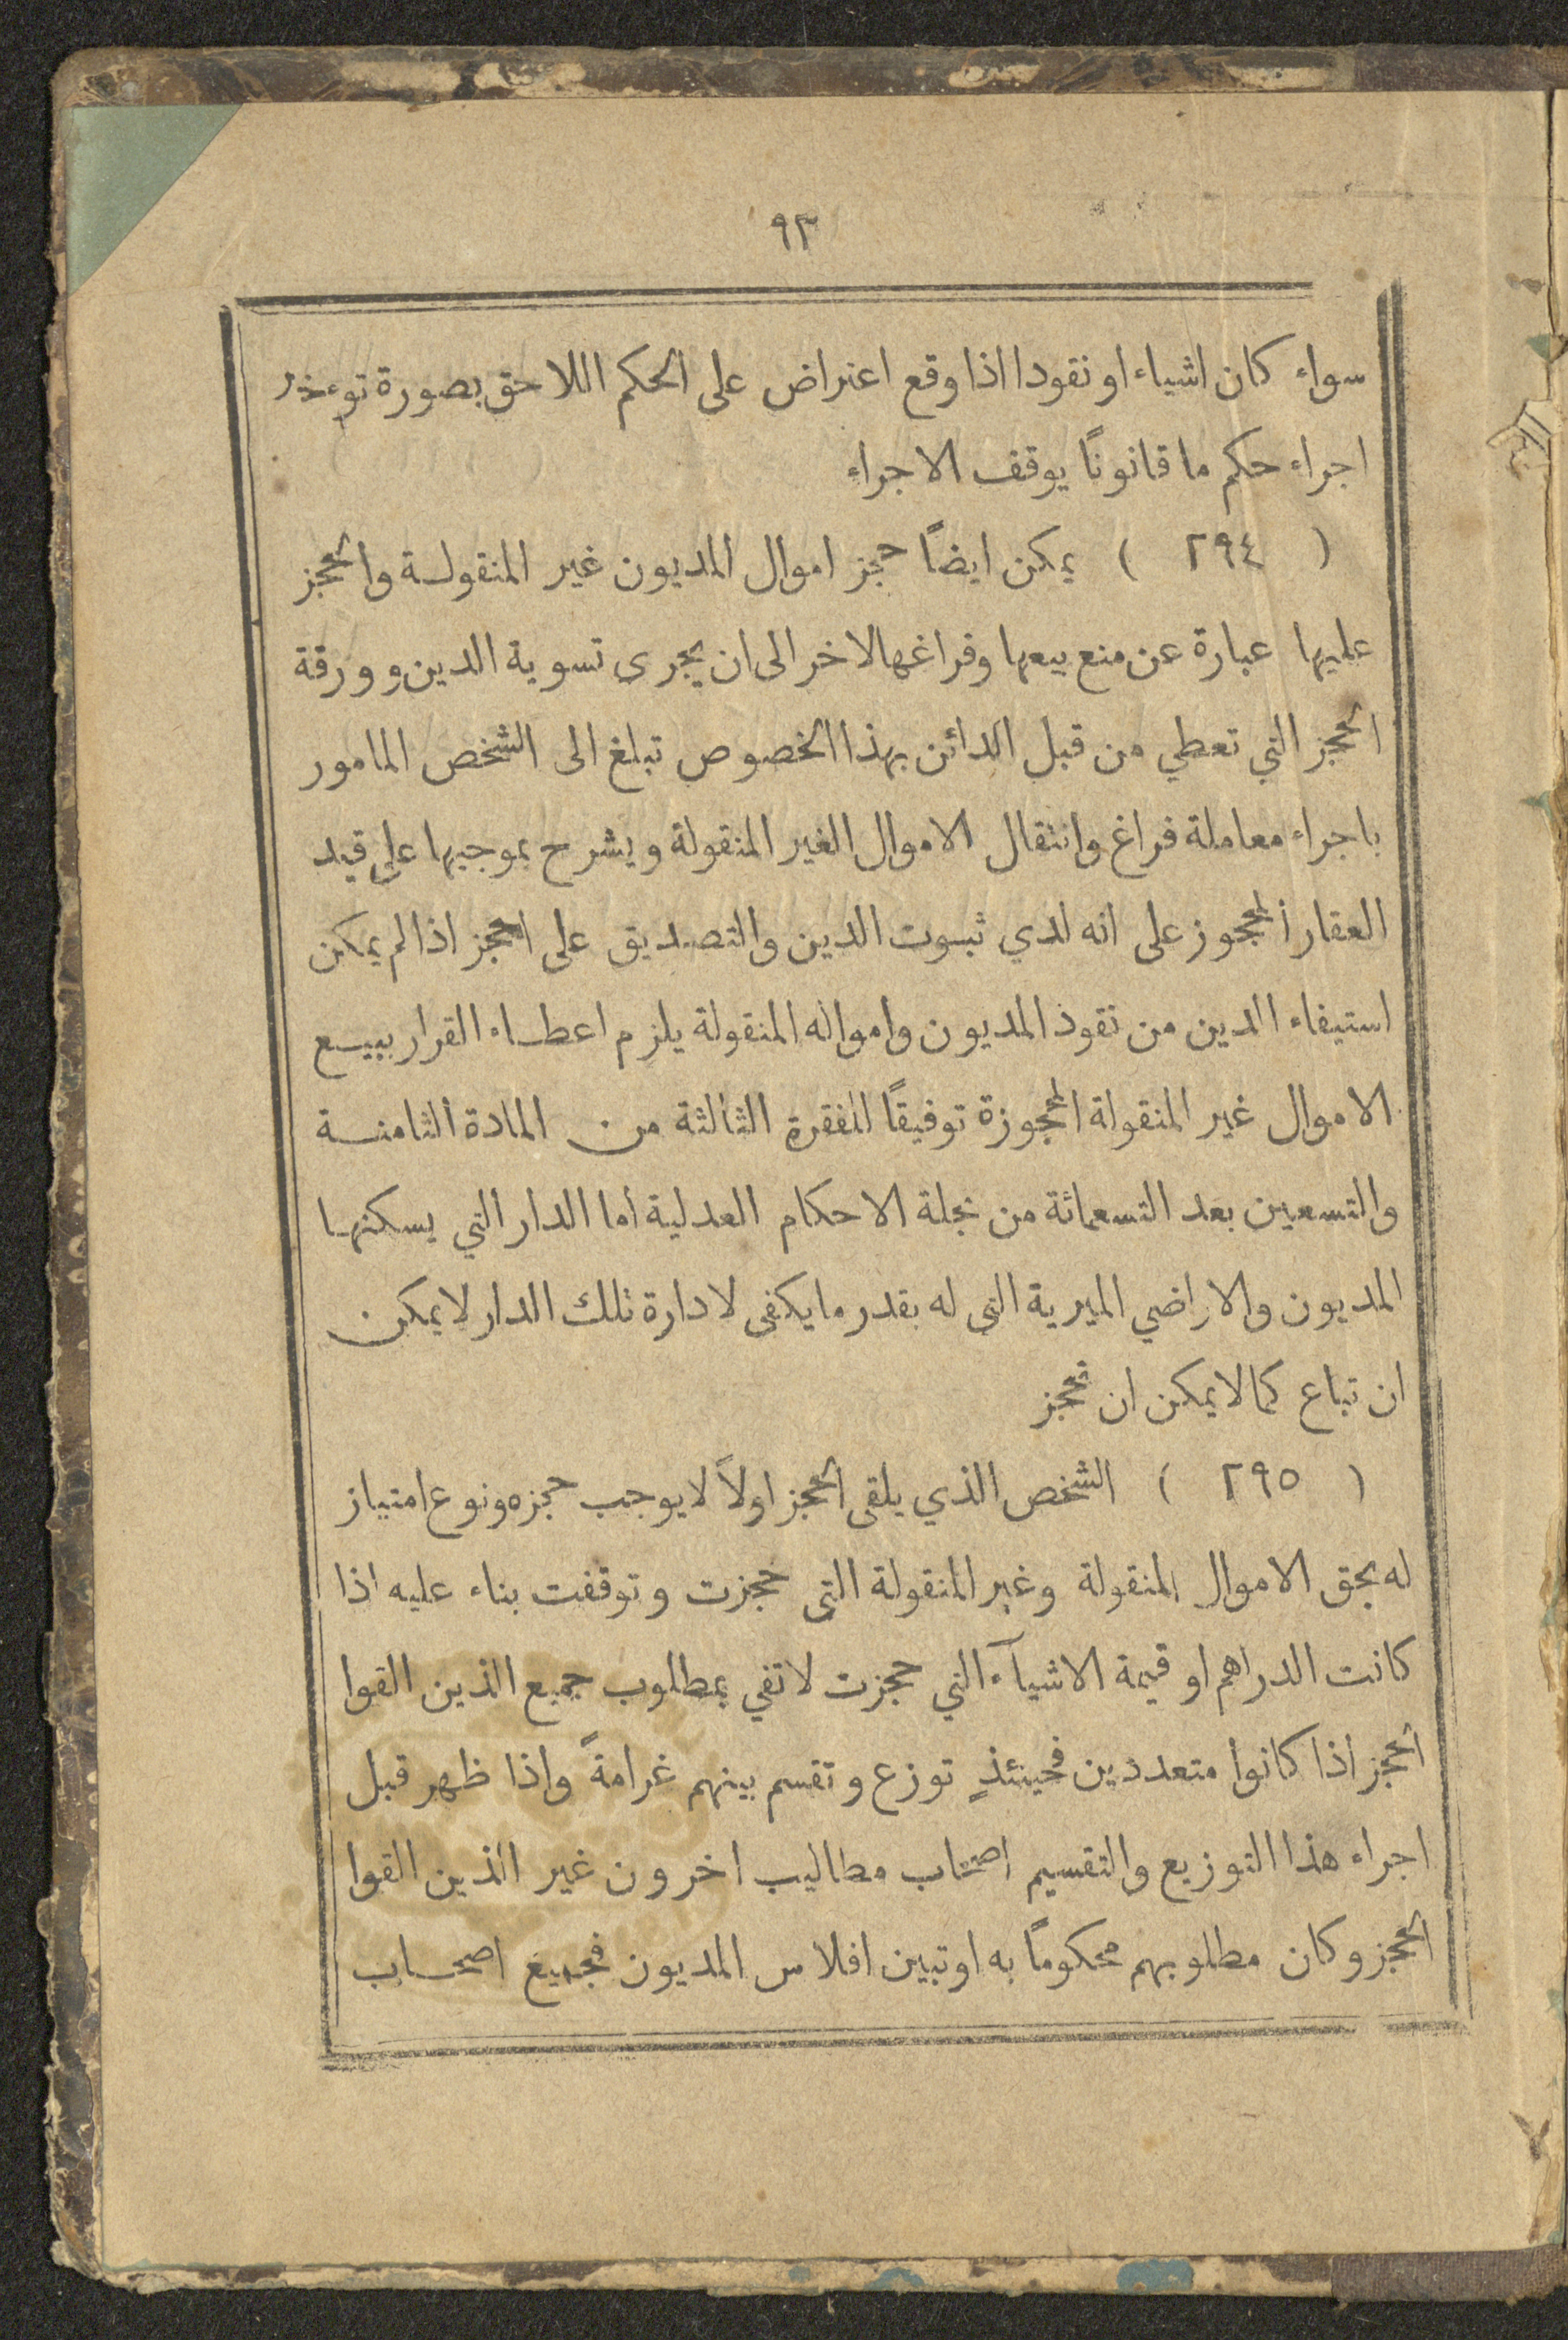 ٩٣
سواء كان اشياء او نقودا اذا وقع اعتراض على الحكم اللاحق بصورة توءخر
اجراء حكم ما قانونًا يوقف الاجراء
( ٢٩٤ ) يمكن ايضًا حجز اموال المديون غير المنقولة والحجز
عليها عبارة عن منع بيعها وفراغها لاخر الى ان يجرى تسوية الدين وورقة
الحجز التي تعطي من قبل الدائن بهذا الخصوص تبلغ الى الشخص المامور
باجراء معاملة فراغ وانتقال الاموال الغير المنقولة ويشرح بموجبها على قيد
العقار المحجوز على انه لدي ثبوت الدين والتصديق على الحجز اذا لم يمكن
استيفاء الدين من نقوذ المديون وامواله المنقولة يلزم اعطاء القرار ببيع
الاموال غير المنقولة المحجوزة توفيقًا للفقرة الثالثة من المادة الثامنة
والتسعين بعد التسعمائة من مجلة الاحكام العدلية اما الدار التي يسكنها
المديون والاراضي الميرية التي له بقدر ما يكفى لادارة تلك الدار لا يمكن
ان تباع كما لا يمكن ان تحجز
( ٢٩٥ ) الشخص الذي يلقى الحجز اولاً لا يوجب حجزه ونوع امتياز
له بحق الاموال المنقولة وغير المنقولة التي حجزت وتوقفت بناء عليه اذا
كانت الدراهم او قيمة الاشيآء التي حجزت لا تفي بمطلوب جميع الذين القوا
الحجز اذا كانوا متعددين فحينئذٍ توزع وتقسم بينهم غرامةً واذا ظهر قبل
اجراء هذا التوزيع والتقسيم اصحاب مطاليب اخرون غير الذين القوا
الحجز وكان مطلوبهم محكومًا به او تبين افلاس المديون فجميع اصحاب